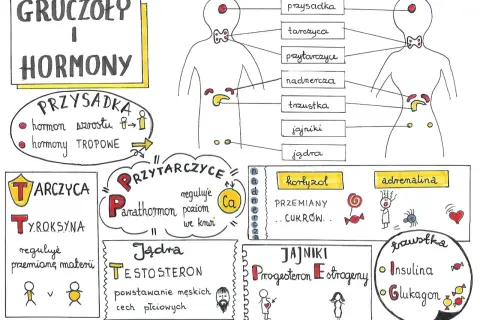 GRUCZOŁY
I
HORMONY
przysadka
tarczyca
przytarczyce
nadnercza
trzustka
jajniki
jądra
PRZYSADKA
hormon wzrostu
hormony TROPOWE
TARCZYCA
TYROKSYNA
reguluje
przemianę materii
PRZYTARCZYCE
Parathormon reguluje
poziom
we krwi
Ca
nadnercza
kortyzol
adrenalina
PRZEMIANY
..CUKRÓW..
Jądra
TESTOSTERON
powstawanie męskich
cech płciowych
JAJNIKI
Progesteron Estrogeny
trzustka
Insulina
Glukagon